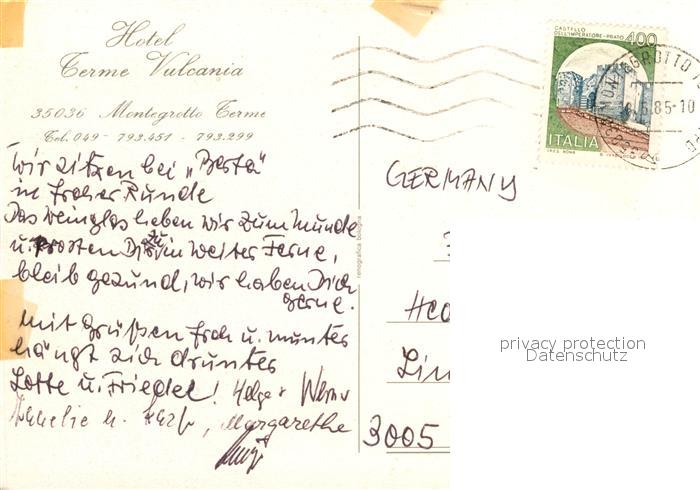 Hotel
Terme Vulcania
35036 Montegrotto Terme
Tel. 049 - 793.451 - 793.299
Wir sitzen bei „Berta"
in froher Runde
Das Weinglas heben wir zum Munde
u. prosten Dir zu in weiter Ferne,
bleib gesund, wir haben Dich
gerne.
Mit Grüßen froh u. munter
hängt sich drunter
Lotte u. Friedel! Helga + Werner
Margarethe
CASTELLO
DELL'IMPERATORE - PRATO
400
ITALIA
MONTEGROTTO
.5.85-10
GERMANY
Lin
3005
privacy protection
Datenschutz